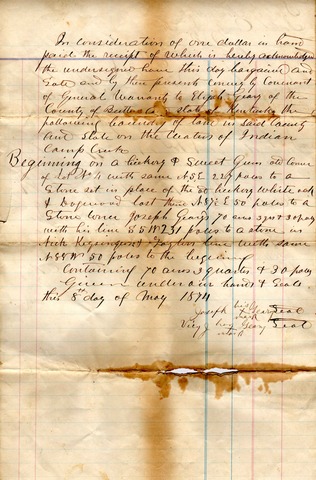 In consideration of one dollar in hand
paid the receipt of which is hereby acknowledged
the undersigned have this day bargained and
Sold and by these presents convey by covenant
of General Warranty to Geary of the
County of State of Kentucky the
following boundary of land in said County
and State on the waters of Indian
Camp Creek
Beginning on a hickory & Sweet Gum corner
of Lot No 4 with same N 5 E 229 poles to a
Stone set in place of the 50 hickory White oak
& Dogwood lost thence E 50 poles to a
Stone corner Joseph Gearys 70 acres 3 qrs & 30 poles
with his line S 5 W 231 poles to a stone in
line with same
50 poles to the beginning
Containing 70 acres 3 quarters & 30 poles
Given under our hands & Seals
this 8th day of May 1874
Joseph his x mark Geary Seal
her x mark Geary Seal